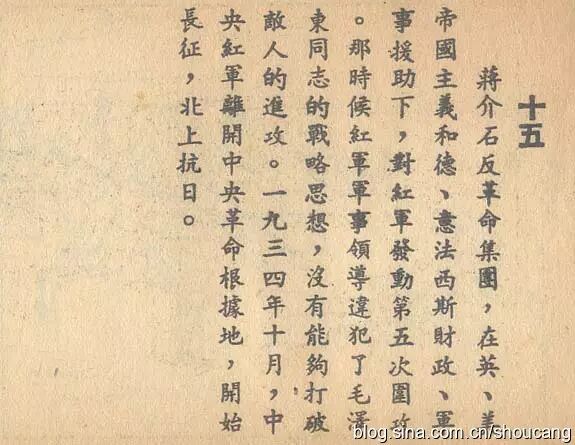 十五
蔣介石反革命集團，在英、美
帝國主義和德、意法西斯財政、軍
事援助下，對紅軍發動第五次圍攻
。那時候紅軍軍事領導違犯了毛澤
東同志的戰略思想，沒有能夠打破
敵人的進攻。一九三四年十月，中
央紅軍離開中央革命根據地，開始
長征，北上抗日。
blog.sina.com.cn/shoucang